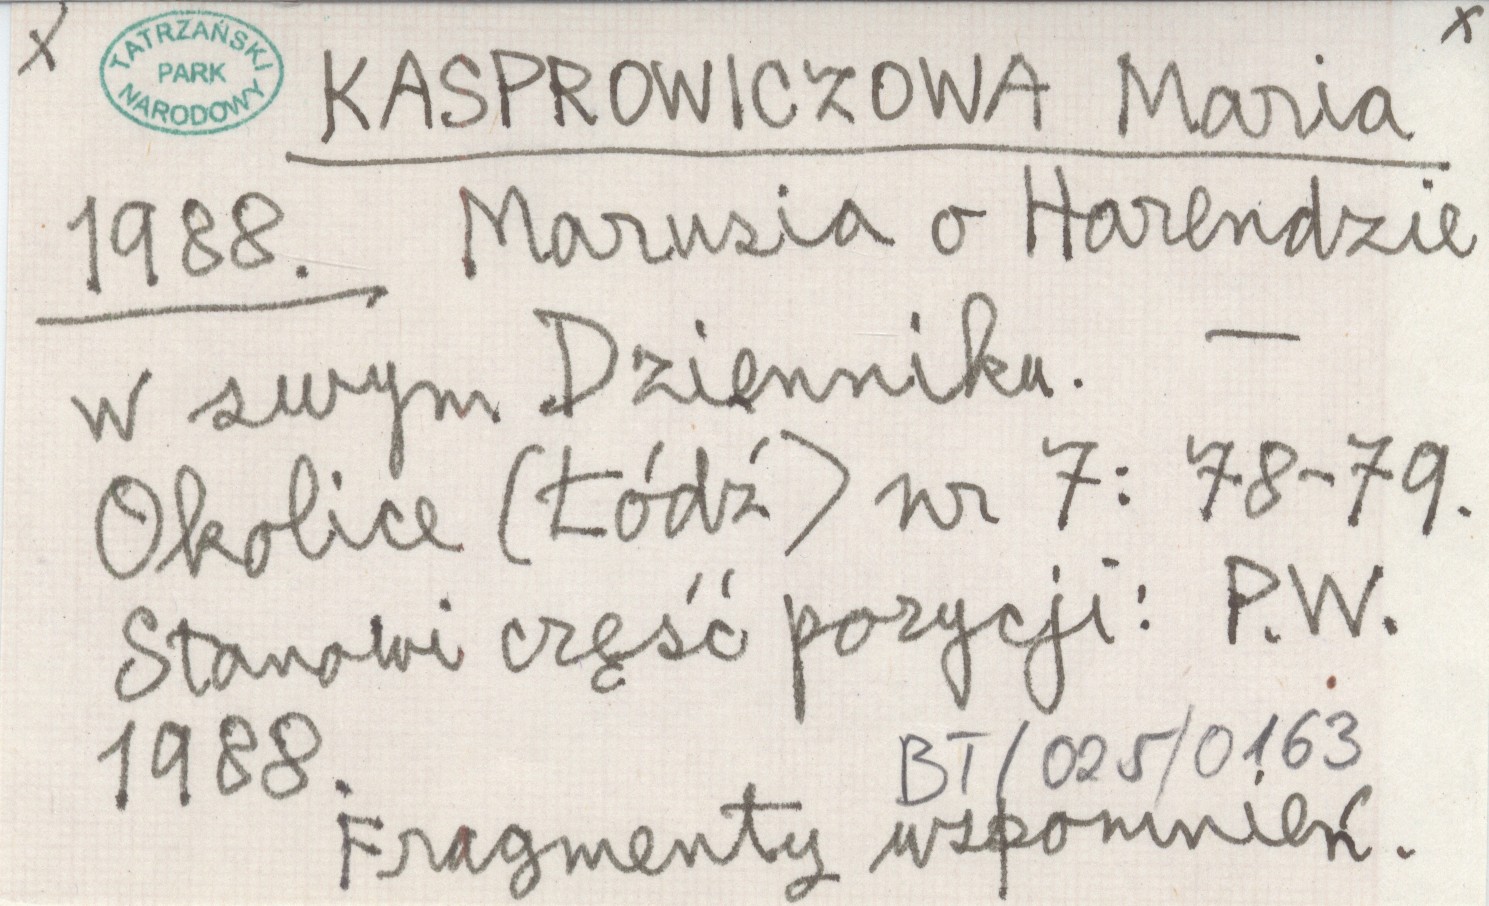 x
x
TATRZAŃSKI
PARK
NARODOWY
KASPROWICZOWA Maria
1988. Marusia o Harendzie
w swym Dzienniku. —
Okolice (Łódź) nr 7: 78-79.
Stanowi część pozycji: P.W.
1988.
BT/025/0163
Fragmenty wspomnień.